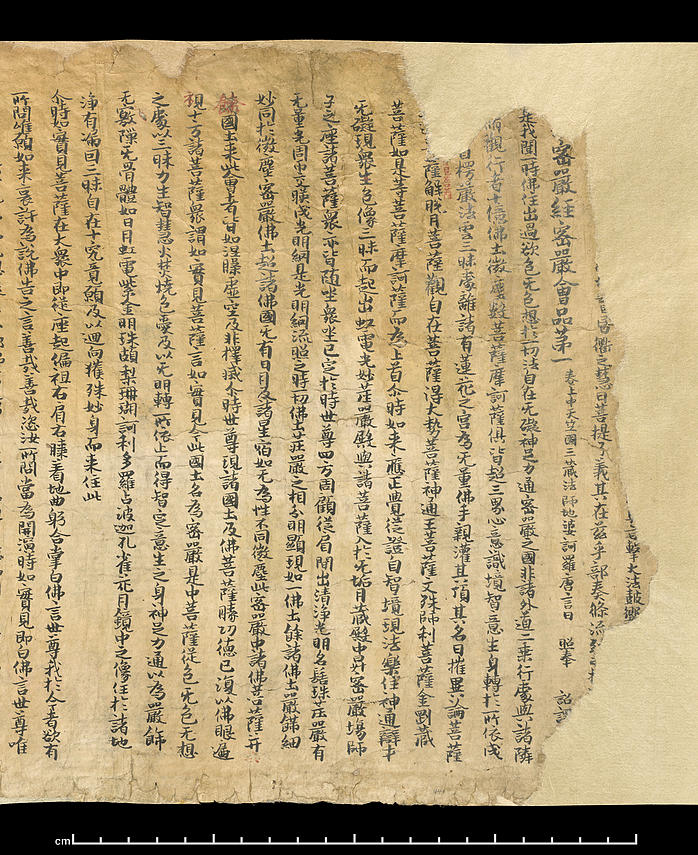 言擊大法鼓
昏衢之慧日菩提了義其在茲乎部袠條流
密嚴經密嚴會品第一
卷上中天竺國三藏法師地婆訶羅唐言日照奉 詔譯
是我聞一時佛住出過欲色无色想於一切法自在无礙神足力通密嚴之國非諸外道二乘行處與諸隣
觀行者十億佛土微塵數菩薩摩訶薩俱皆超三界心意識境智意生身轉於所依成
楞嚴法雲三昧處離諸有蓮花之宮為无量佛手親灌其頂其名曰摧異論菩薩
薩解脫月菩薩觀自在菩薩得大勢菩薩神通王菩薩文殊師利菩薩金剛藏
菩薩如是等菩薩摩訶薩而為上首尒時如來應正覺從證自智境現法樂住神通辯才
无礙現眾生色像三昧而起出虹電光妙莊嚴殿與諸菩薩入於无垢月藏殿中昇密嚴場師
子之座諸菩薩眾亦皆隨坐眾坐已定於時世尊四方周顧從眉間出清淨光明名髻珠莊嚴有
无量光圍中交暎成光明網是光明網流照之時一切佛土莊嚴之相分明顯現如一佛土餘諸佛土嚴餝細
妙同於微塵密嚴佛土超諸佛國无有日月及諸星宿如无為性不同微塵此密嚴中諸佛菩薩并
餘國土來此會者皆如涅槃虛空及非擇滅尒時世尊現諸國土及佛菩薩勝功德已復以佛眼遍
視十方諸菩薩眾謂如實見菩薩言如實見今此國土名為密嚴是中菩薩從色无色无想
之處以三昧力生智慧火焚燒色愛及以无明轉所依止而得智定意生之身神足力通以為嚴餝
无竅隙无骨體如日月虹電紫金明珠頗梨珊瑚訶利多羅占波迦孔雀花月鏡中之像住於諸地
淨有漏因三昧自在十究竟願及以迴向獲殊妙身而來住此
尒時如實見菩薩在大眾中即從座起偏袒右肩右膝著地曲躬合掌白佛言世尊我於今者欲有
所問唯願如來哀許為說佛告之言善哉善哉恣汝所問當為開演時如實見即白佛言世尊唯
cm